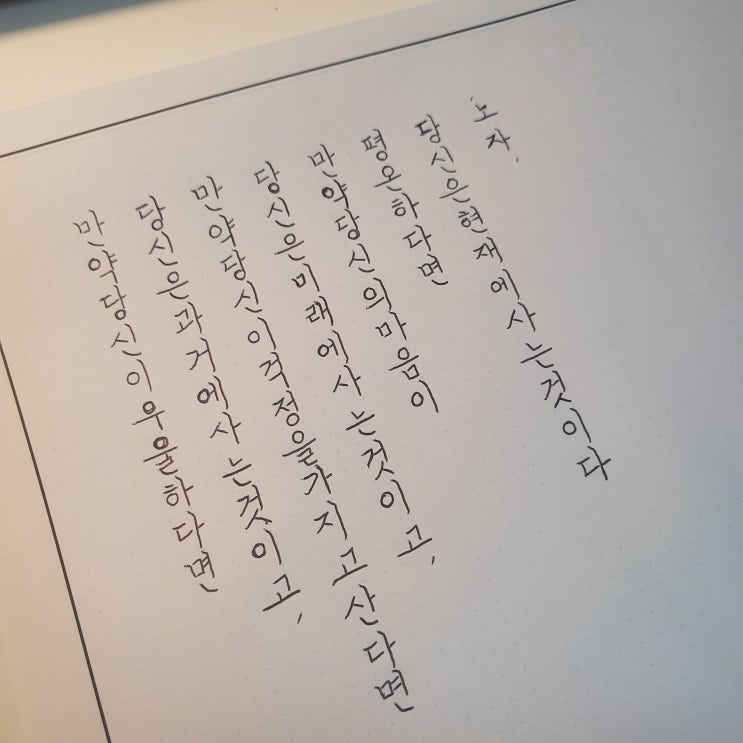 만약당신이우울하다면
당신은과거에사는것이고,
만약당신이걱정을가지고산다면
당신은미래에사는것이고,
만약당신의마음이
평온하다면
당신은현재에사는것이다
노자.